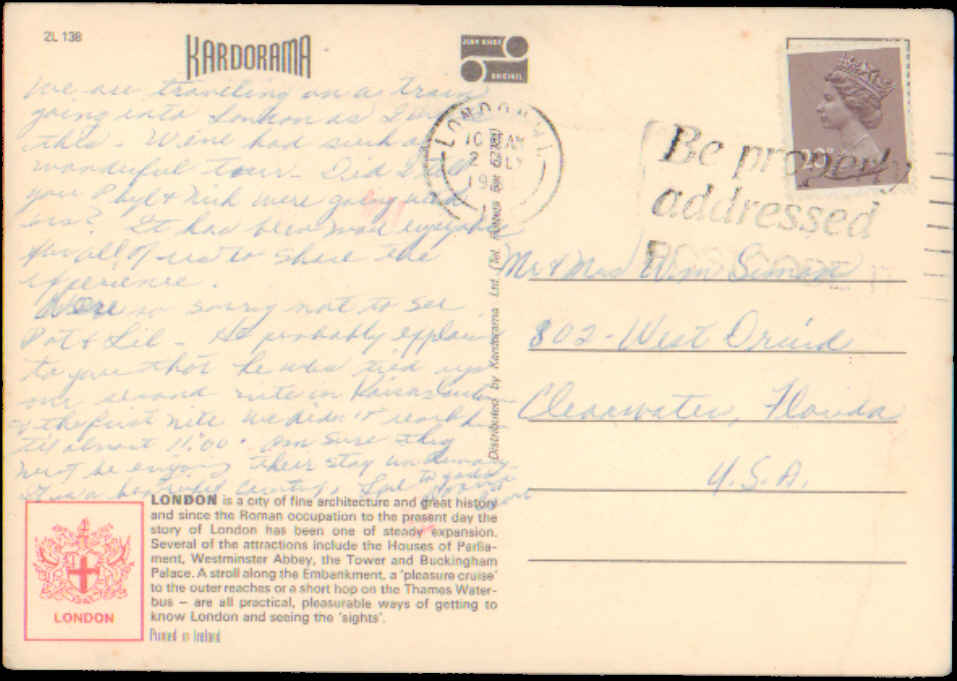 2L 138
KARDORAMA
JOHN HINDE
ORIGINAL
We are traveling on a train
going into London as I write
this. We've had such a
wonderful tour. Did I tell
you Phyl & Nick were going with
us? It has been more enjoyable
for all of us to share the
experience.
Were so sorry not to see
Pat & Lil - He probably explained
to you that he was tied up
our second nite in
& the first nite we didn't reach
til almost 11:00. Am sure they
must be enjoying their stay in Germany.
It is a beautiful country.
LONDON W1
10 AM
2 JLY
19
Be properly
addressed
POSTCODE IT
Mr & Mrs Wm
802 - West Druid
Clearwater, Florida
U.S.A.
Distributed by Kardorama Ltd. (Tel. POTTERS BAR
LONDON is a city of fine architecture and great history
and since the Roman occupation to the present day the
story of London has been one of steady expansion.
Several of the attractions include the Houses of Parlia-
ment, Westminster Abbey, the Tower and Buckingham
Palace. A stroll along the Embankment, a 'pleasure cruise'
to the outer reaches or a short hop on the Thames Water-
bus – are all practical, pleasurable ways of getting to
know London and seeing the 'sights'.
LONDON
Printed in Ireland